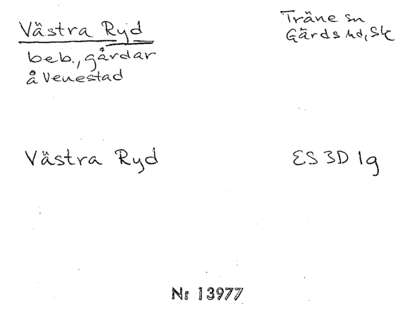 Västra Ryd
Träne sn
Gärds hd, Sk
beb., gårdar
å Venestad
Västra Ryd
ES 3D 1g
Nr 13977